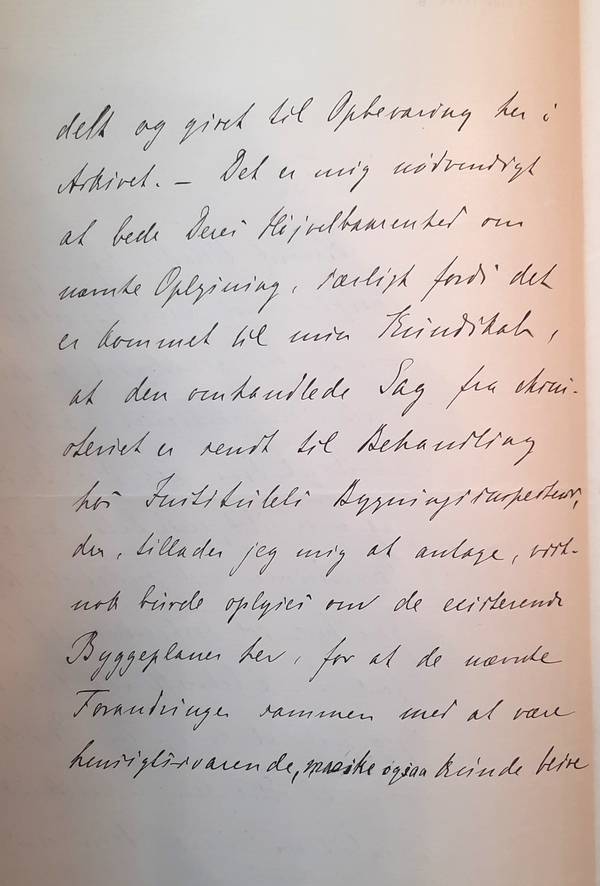 delt og givet til Opbevaring her i
Arkivet. — Det er mig nødvendigt
at bede Deres Højvelbaarenhed om
nævnte Oplysning, særligt fordi det
er kommet til min Kundskab,
at den omhandlede Sag fra Mini-
steriet er sendt til Behandling
hos Institutets Bygningsinspecteur,
der, tillader jeg mig at antage, vist-
nok burde oplyses om de existerende
Byggeplaner her, for at de nævnte
Forandringer sammen med at være
hensigtssvarende, maaske ogsaa kunde blive